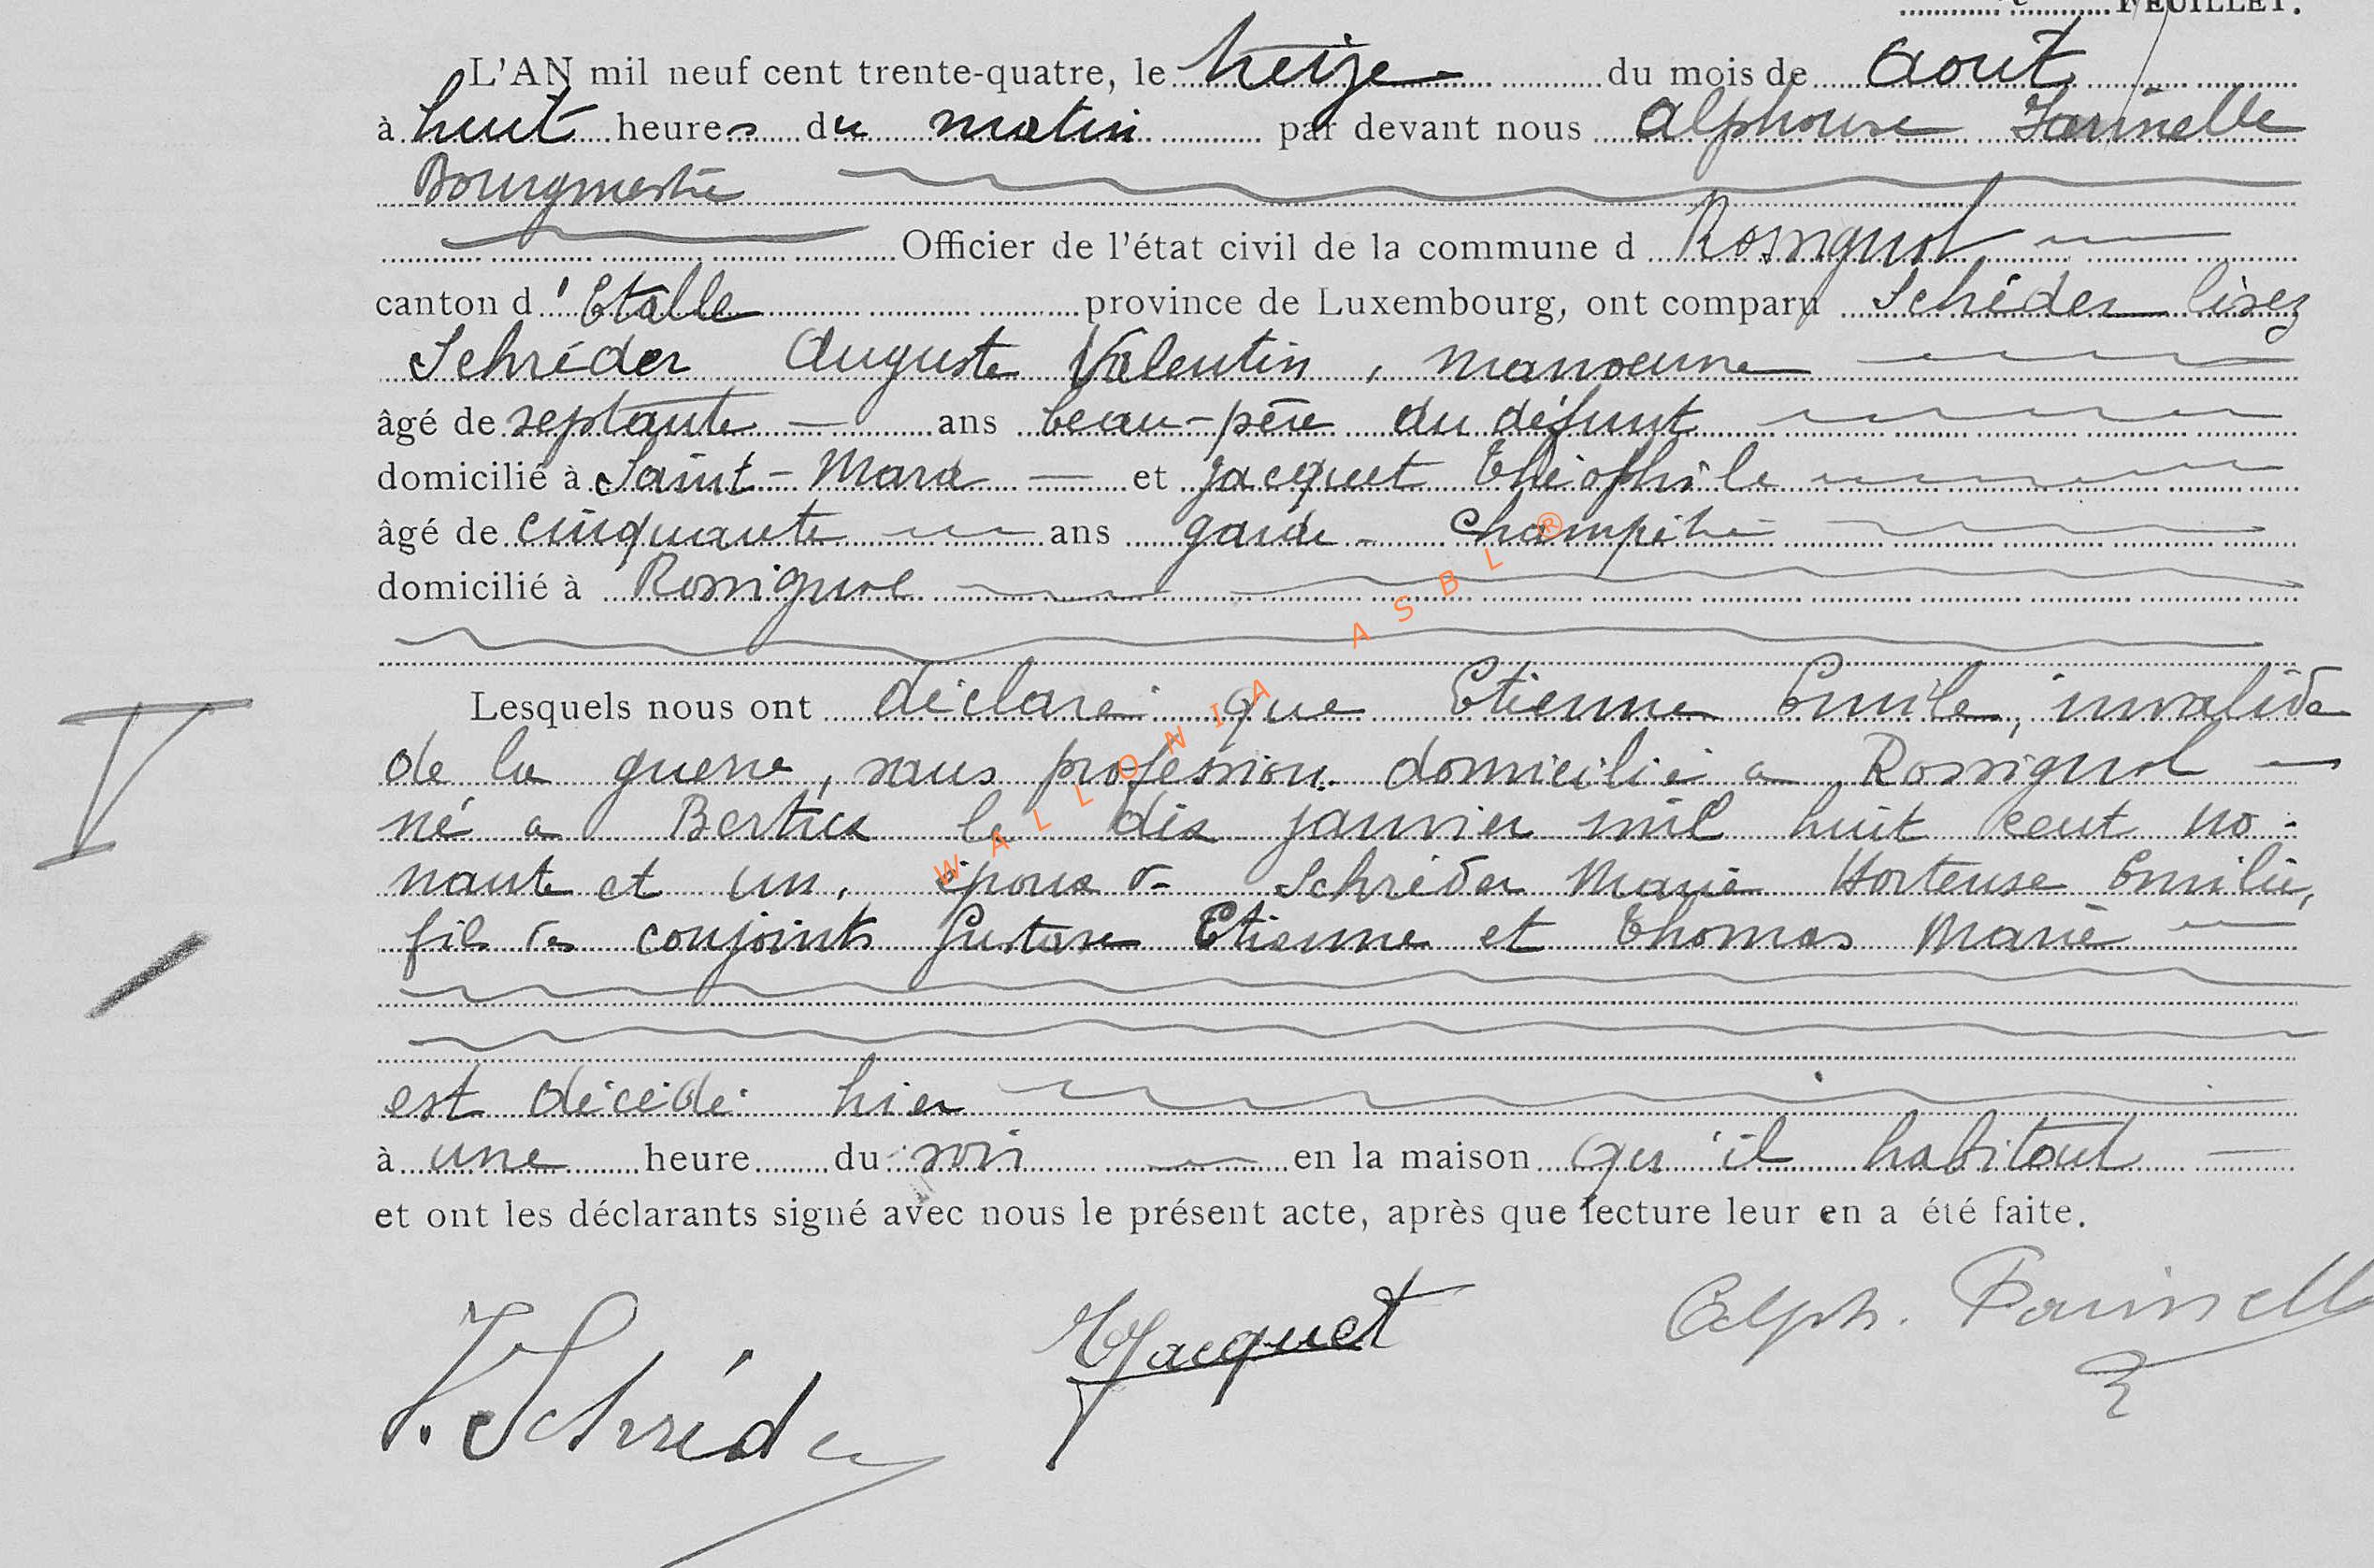 FEUILLET.
L'AN mil neuf cent trente-quatre, le treize du mois de Août
à huit heures du matin par devant nous Alphonse Farinelle
Bourgmestre
Officier de l'état civil de la commune d Rossignol
canton d'Etalle province de Luxembourg, ont comparu Schéder lisez
Schréder Auguste Valentin, manoeuvre
âgé de septante ans beau-père du défunt
domicilié à Saint-Mard et Jacquet Théophile
âgé de cinquante ans garde-champêtre
domicilié à Rossignol
Lesquels nous ont déclaré que Etienne Emile, invalide
de la guerre, sans profession domicilié a Rossignol
né a Bertrix le dix janvier mil huit cent no-
nante et un, époux de Schréder Marie Hortense Emilie,
fils des conjoints Gustave Etienne et Thomas Marie
est décédé hier
à une heure du soir en la maison qu'il habitait
et ont les déclarants signé avec nous le présent acte, après que lecture leur en a été faite.
V. Schréder
Th Jacquet
Alph. Farinelle
WALLONIA ASBL ®